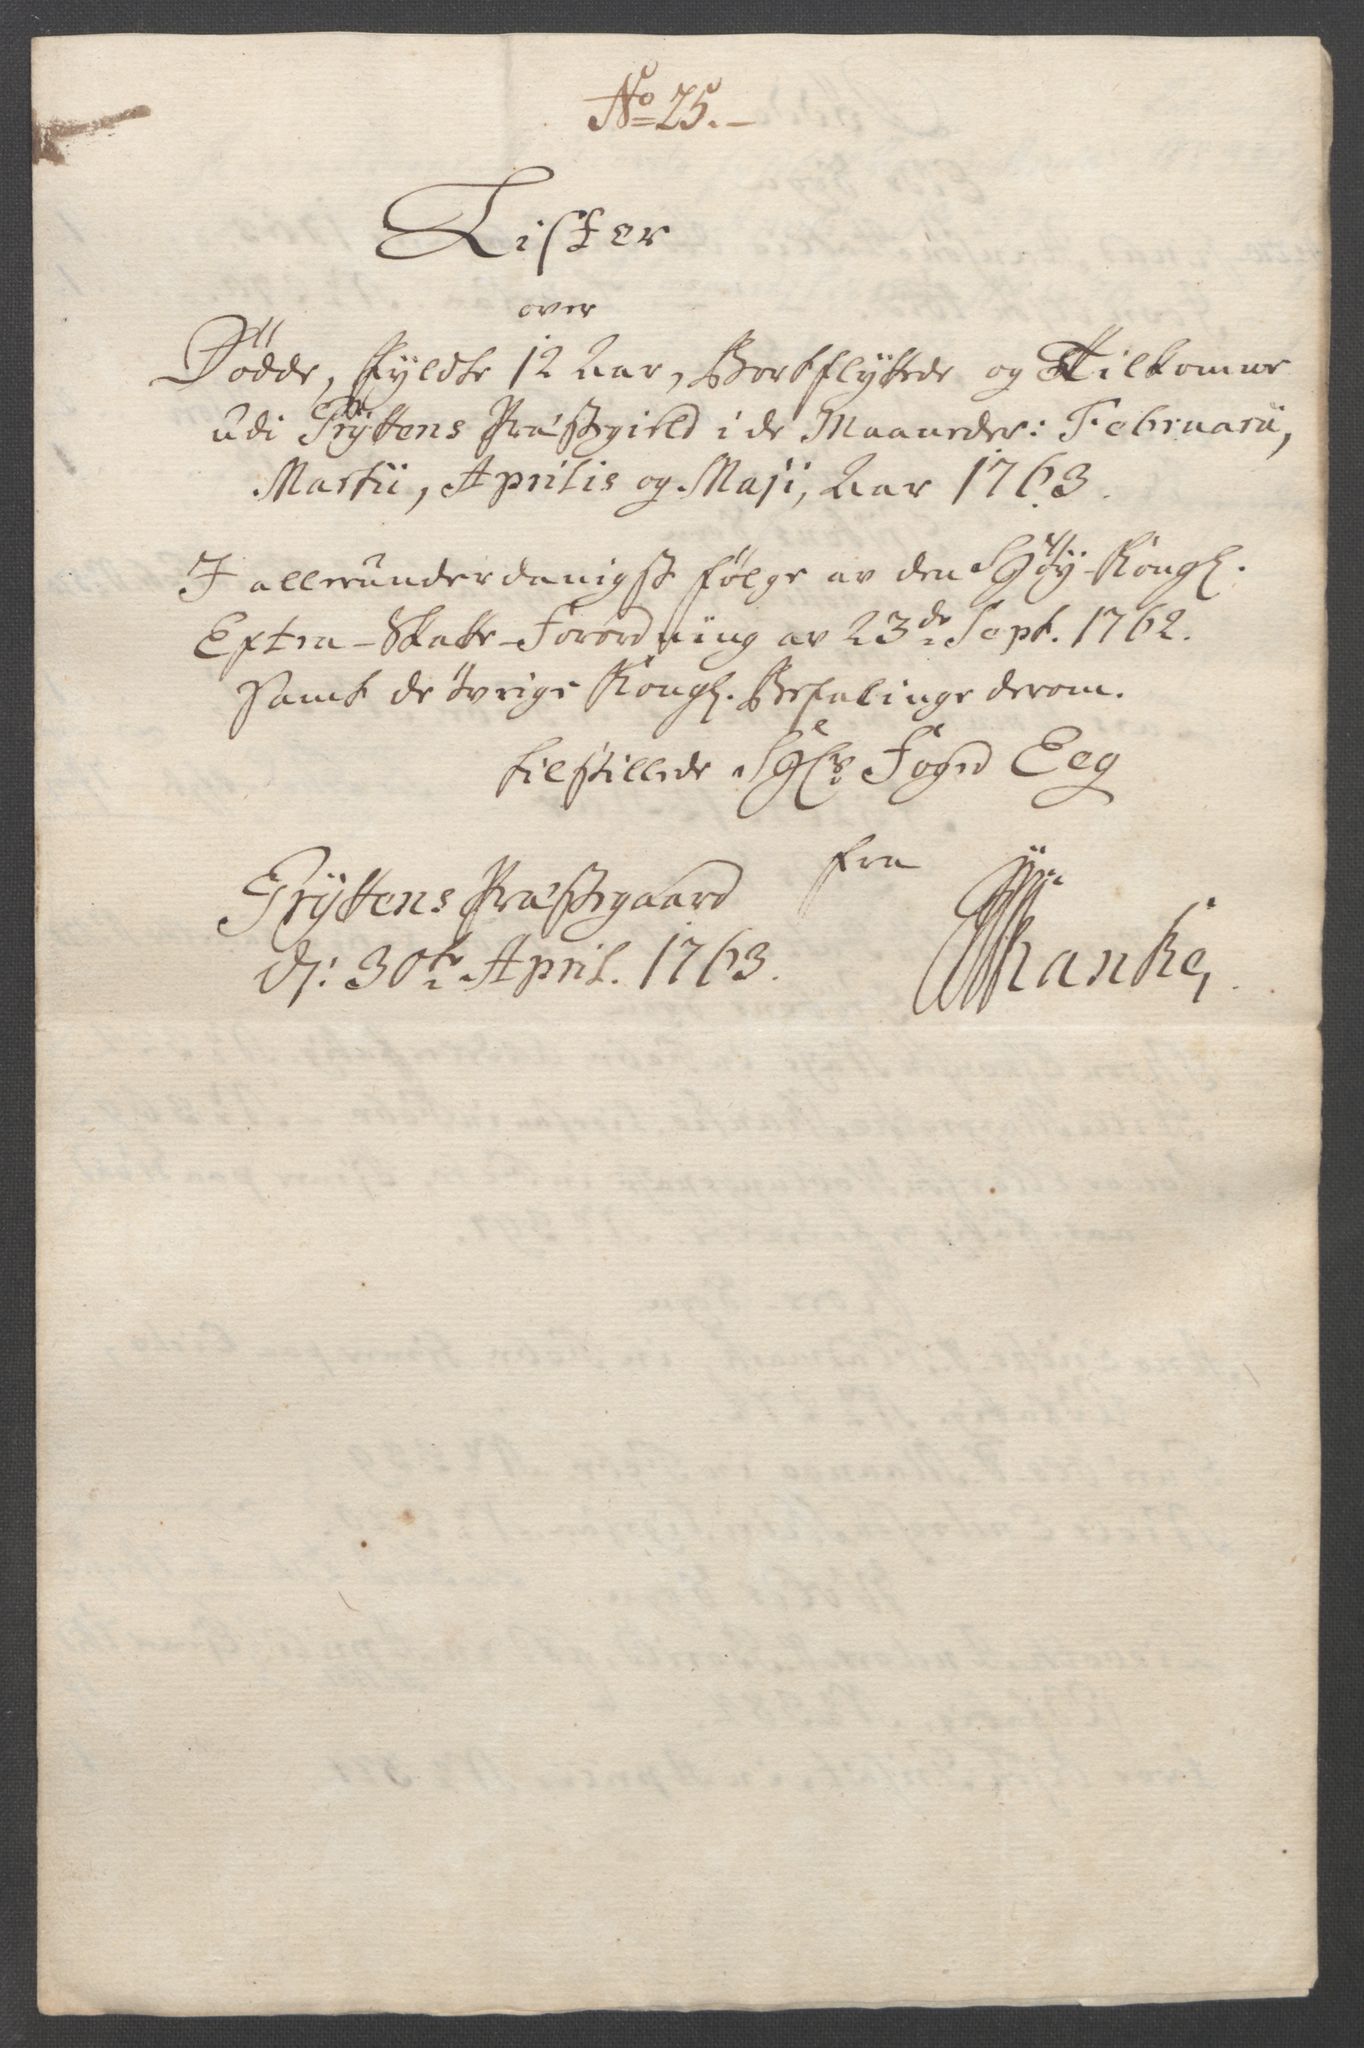 No 25.
Lister
over
Dödde, Fyldte 12 Aar, Bortflyttede og Tilkomne
udi Tryttens Præstegield i de Maaneder: Februarii,
Martii, Aprilis og Maji, Aar 1763.
I allerunderdanigst følge av den Høy-Kongl.
Extra-Skatte-Forordning av 23de Sept. 1762.
samt de övrige Kongl. Befalinge derom.
tilstillede Sr Foged Eeg
fra
Tryttens Præstegaard
d: 30te April. 1763.